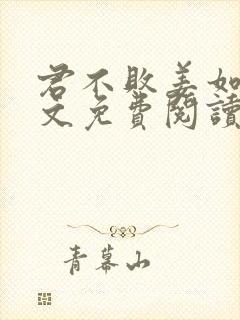 君不敗姜如
文免費閱讀
青幕山